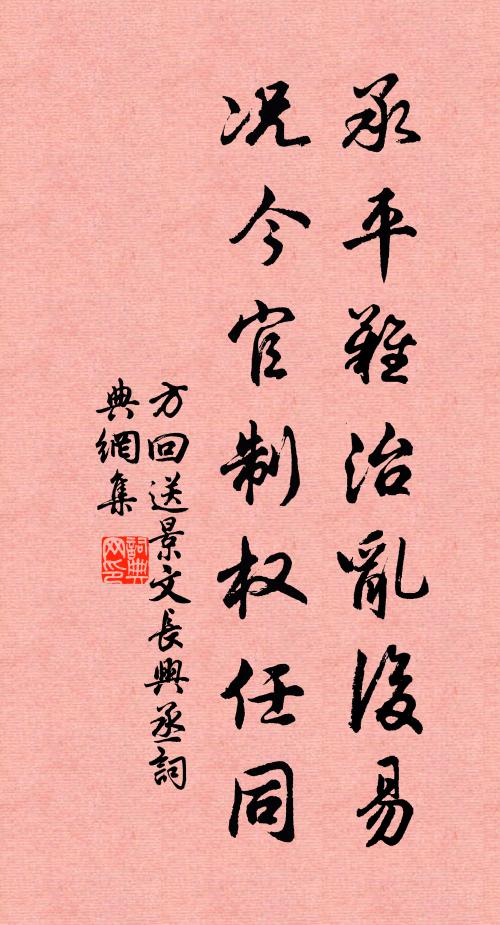 承平難治亂後易
况今官制权任同
方回送景文長興丞詞
典網集
詞典
网印